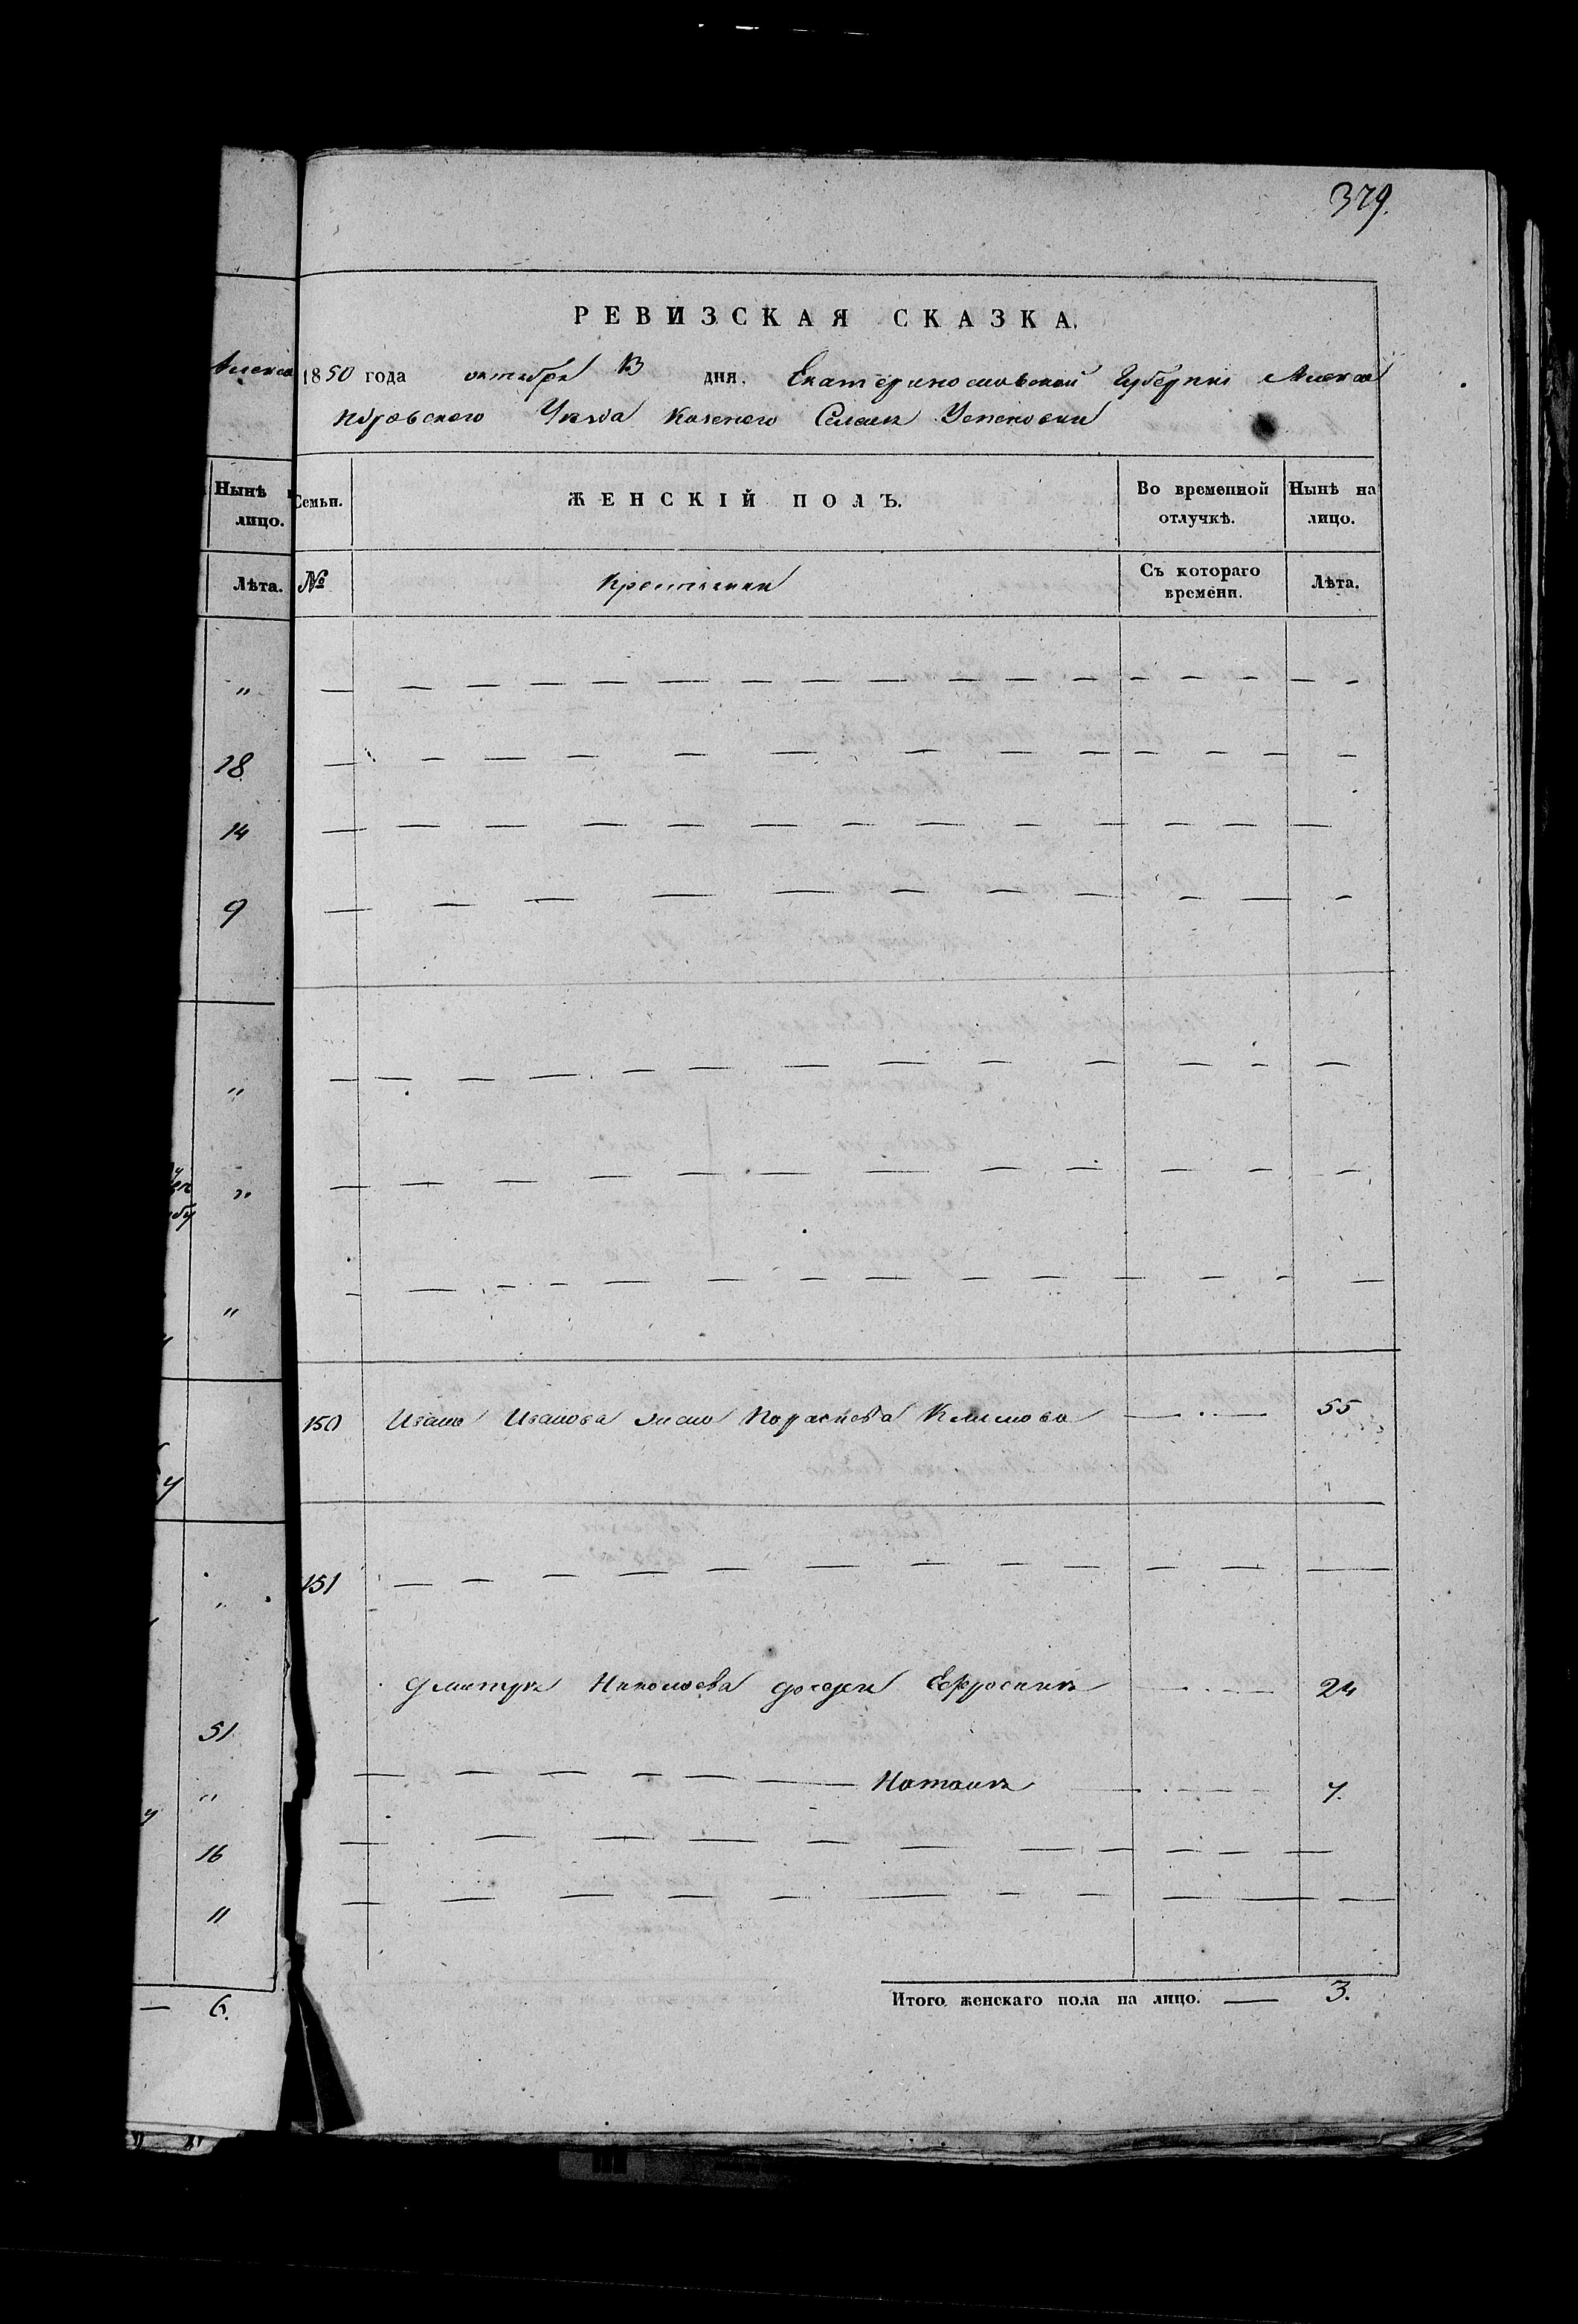 379.
РЕВИЗСКАЯ СКАЗКА.
1850 года октября 13 дня. Екатеринославской Губернии Алекса
ндровского Уезда Казенного Селения
Нынѣ
лицо.
Лѣта.
Семьи.
ЖЕНСКІЙ ПОЛЪ.
Во временной отлучкѣ.
Нынѣ на лицо.
№
Крестьянки
Съ котораго времени.
Лѣта.
18
14
9
150 Ивана Иванова жена Параскева Климова 55
151
Дмитрия Николаева дочери Ефросиния 24
51
Наталия 7.
16
11
Итого женскаго пола на лицо. — 3.
— 6.